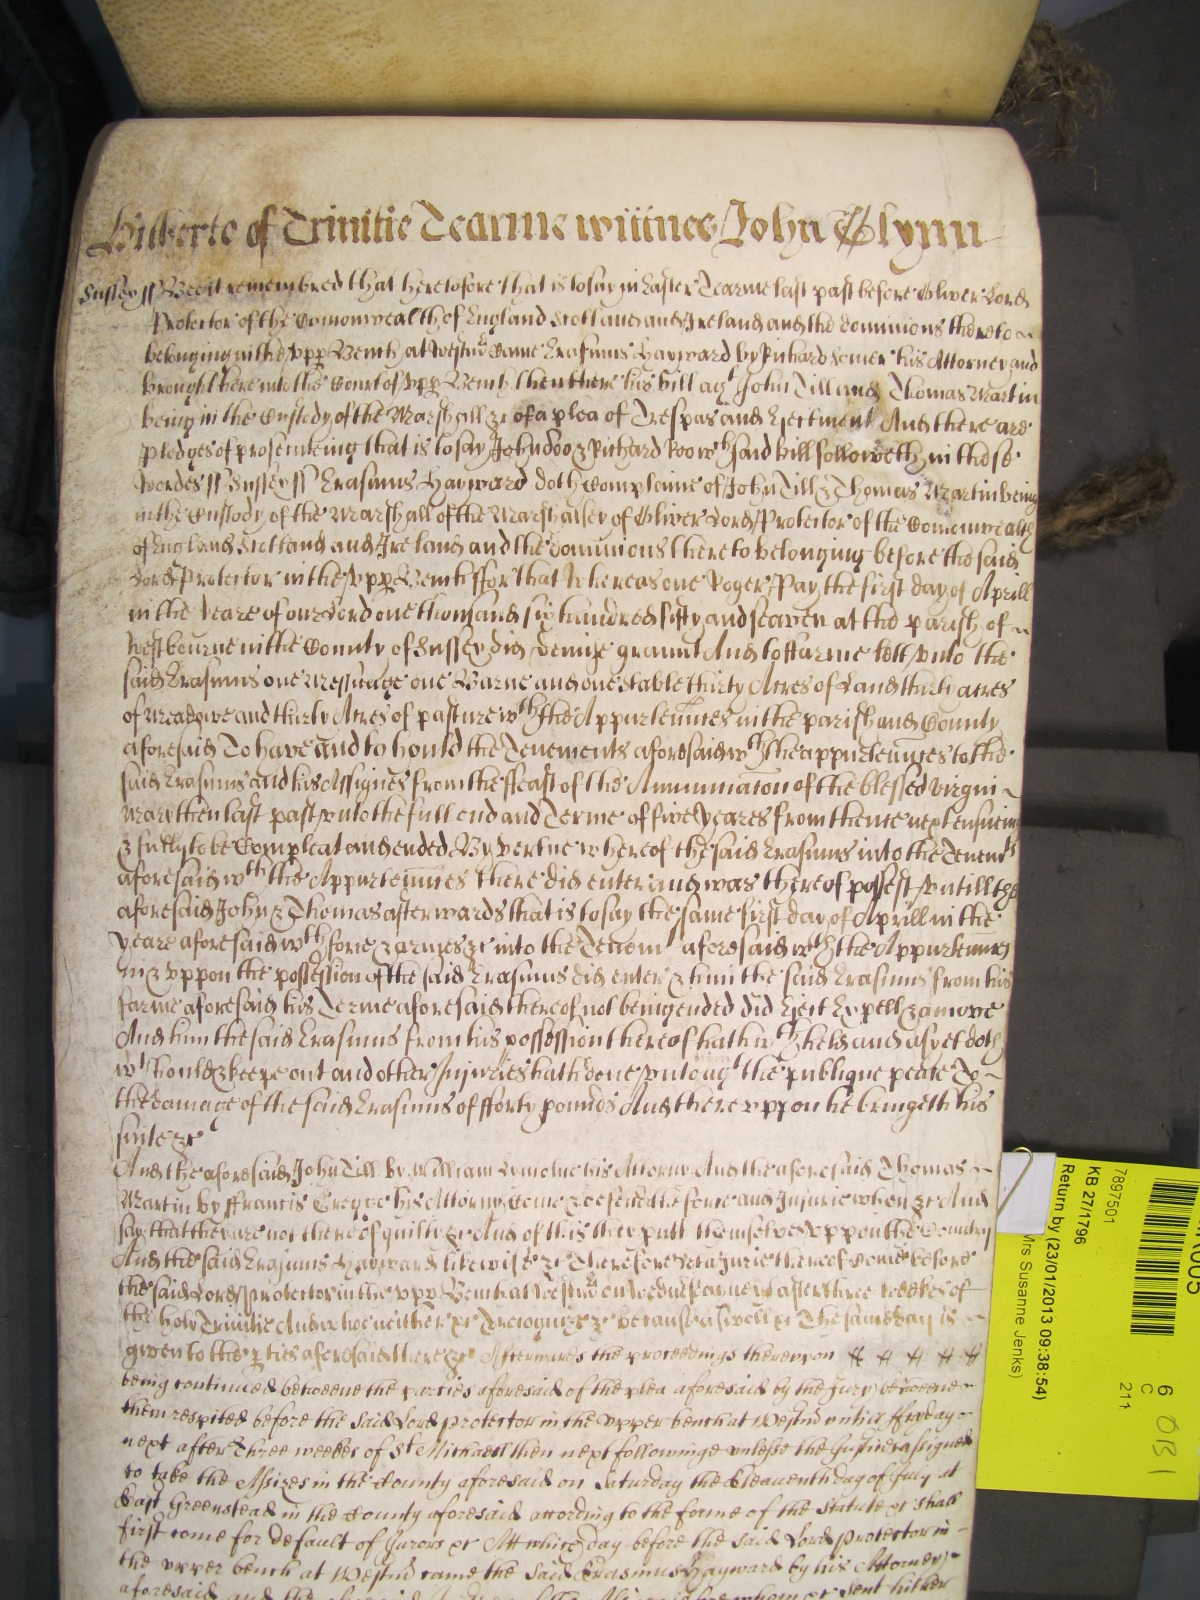 Hitherto of Trinitie Tearme wittnes John Glynn
Sussex ss Bee it remembred that heretofore that is to say in Easter Tearme last past before Oliver Lord
Protector of the Comonwealth of England Scotland and Ireland and the dominions thereto
belonging in the vpp Bench at Westmr Came Erasmus Hayward by Richard his Attorney and
brought here into the Court of vpp Bench then there his bill agt John Till and Thomas Martin
being in the Custody of the Marshall &c of a plea of Trespas and Ejectment And there are
pledges of prosecuting that is to say John doo & Richard Roo wch said bill followeth in these
wordes ss Sussex ss Erasmus Hayward doth Complaine of John Till & Thomas Martin being
in the Custody of the Marshall of the Marshalsey of Oliver Lord Protector of the Comonwealth
of England Scotland and Ireland and the dominions thereto belonging before the said
Lord Protector in the vpp Bench ffor that Whereas one Roger Pay the first day of Aprill
in the yeare of our Lord one thousand six hundred fifty and seaven at the parish of
Westbourne in the County of Sussex did demise graunt And to ffarme lett vnto the
said Erasmus one Messuage one Barne and one stable thirty Acres of Land thirty acres
of Meadowe and thirty Acres of pasture wth the Appurtennces in the parish and County
aforesaid To have and to hould the Tenements aforesaid wth the appurtennces to the
said Erasmus and his Assignes from the ffeast of the Annunciacon of the blessed virgin
Mary then last past vnto the full end and Terme of five yeares from thence next ensueing
& fully to be Compleat and ended By vertue whereof the said Erasmus into the Tenemts
aforesaid wth the Appurtennces there did enter and was thereof possest vntill the
aforesaid John & Thomas afterwards that is to say the same first day of Aprill in the
yeare aforesaid wth force & armes &c into the Tenemts aforesaid wth the Appurtennces
in & vppon the possession of the said Erasmus did enter & him the said Erasmus from his
farme aforesaid his Terme aforesaid thereof not being ended did Eject Expell & amove
And him the said Erasmus from his possession thereof hath wthheld and as yet doth
wthhould & keepe out and other Injuries hath done vnto agt the publique peace To
the damage of the said Erasmus of fforty pounds And there vppon he bringeth his
suite &c
And the aforesaid John Till by William his Attorny And the aforesaid Thomas
Martin by ffrancis his Attorny Come & defend the force and Injurie when &c And
say that they are not thereof guilty &c And of this they putt themselves vppon the Country
And the said Erasmus Hayward likewise &c Therefore lett a Jurie thereof Come before
the said Lord protector in the vpp Bench at Westmr on Wednesday next after three weekes of
the holy Trinitie And whoe neither &c To recognize &c because aswell &c The same day is
given to the pties aforesaid there &c Afterwards the proceedings therevpon
being continued betweene the parties aforesaid of the plea aforesaid by the Jury betweene
them respited before the said Lord protector in the vpper bench at Westmr vntill ffryday
next after Three weekes of St Michaell then next followinge vnlesse the Justices assigned
to take the Assizes in the County aforesaid on Saturday the Eleaventh day of July at
East Greenstead in the County aforesaid according to the forme of the Statute &c shall
first come for default of Jurors &c Att which day before the said Lord protector in
the vpper bench at Westmr came the said Erasmus Hayward by his Attorney
aforesaid and the sent hither
7897501
KB 27/1796
Return by (23/01/2013 09:38:54)
Mrs Susanne Jenks)
6
C
211